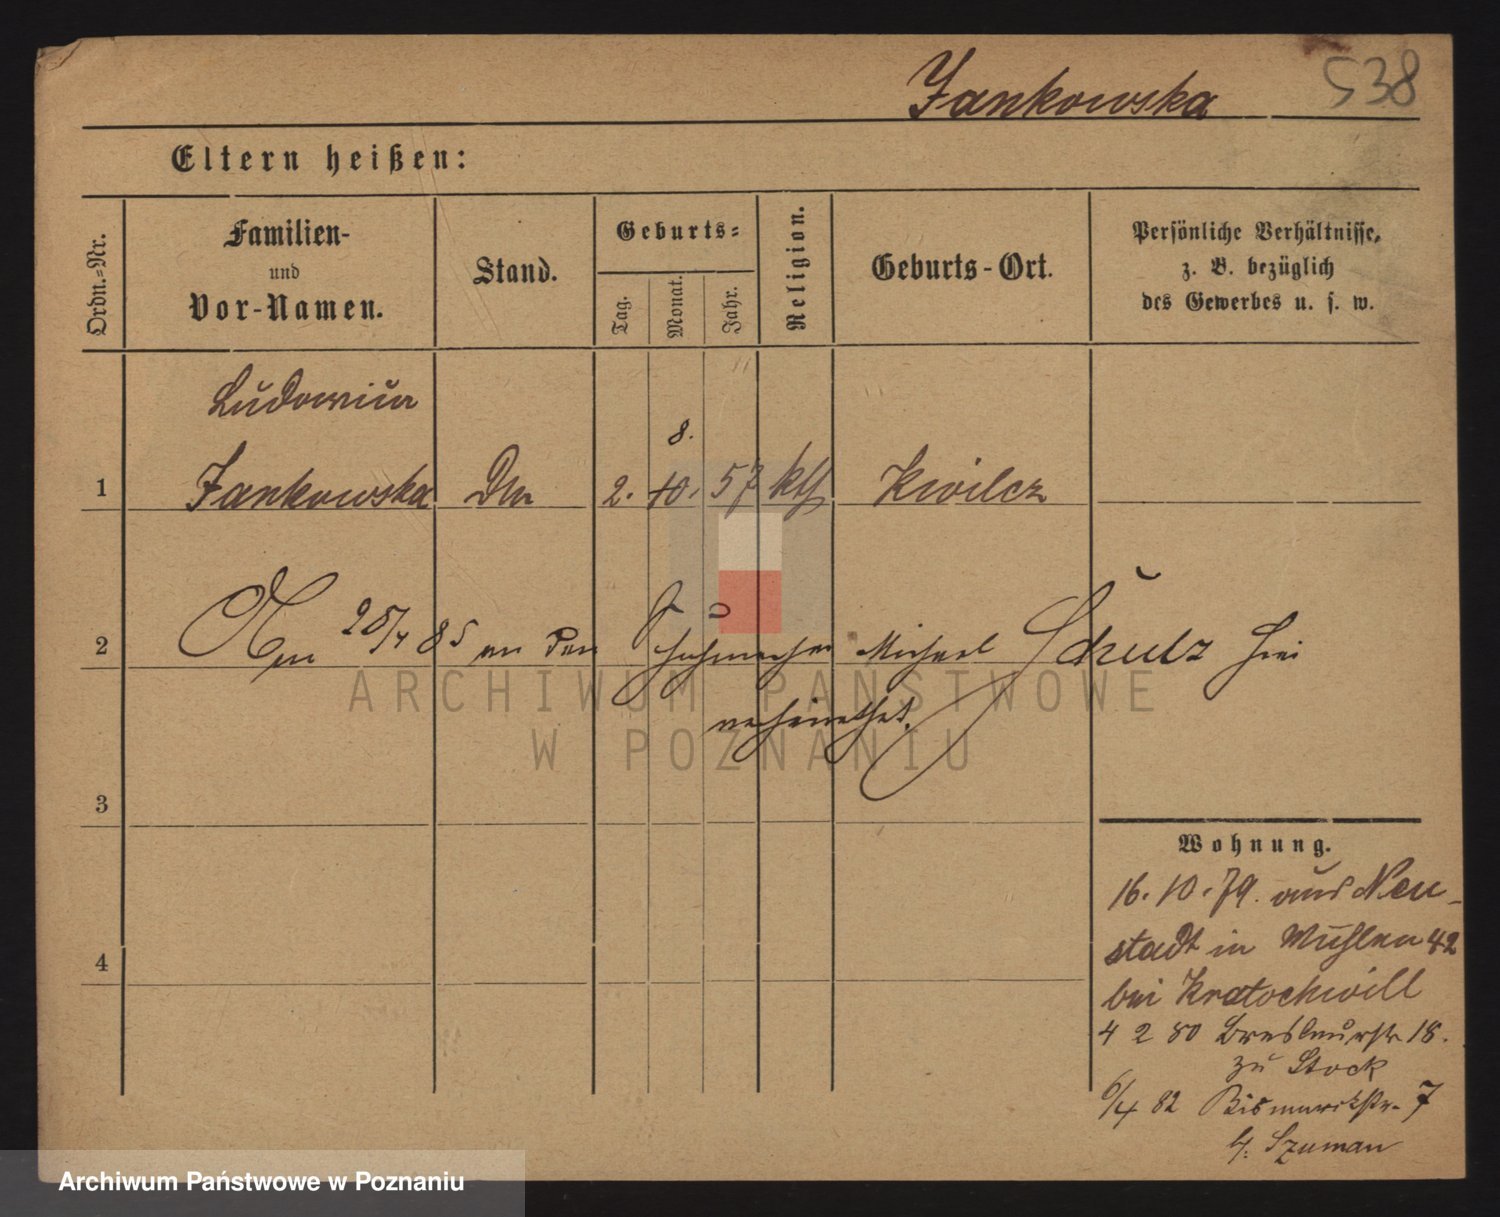 Jankowska 538
Eltern heißen:
Ordn.=Nr.
Familien-
und
Vor-Namen.
Stand.
Geburts=
Tag.
Monat.
Jahr.
Religion.
Geburts-Ort.
Persönliche Verhältnisse,
z. B. bezüglich
des Gewerbes u. s. w.
Ludowica
8.
1 Jankowska 2. 10. 57 kth Kwilcz
2 Am 25/4 85 an den Schuhmacher Michael Schulz hier
verheirathet.
3
Wohnung.
16. 10. 79. aus Neu-
stadt in Mühlen 42
4
bei Kratochwill
4 2 80 Breslauerstr 18.
zu Stock
6/4 82 Bismarckstr. 7
b. Szuman
ARCHIWUM PAŃSTWOWE
W POZNANIU
Archiwum Państwowe w Poznaniu